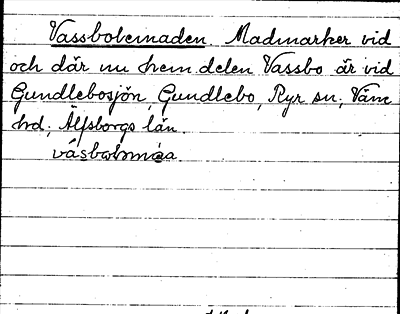 Vassbobemaden. Madmarker vid
och där nu hem.delen Vassbo är vid
Gundlebosjön, Gundlebo, Ryr sn, Väne
hd, Älfsborgs län.